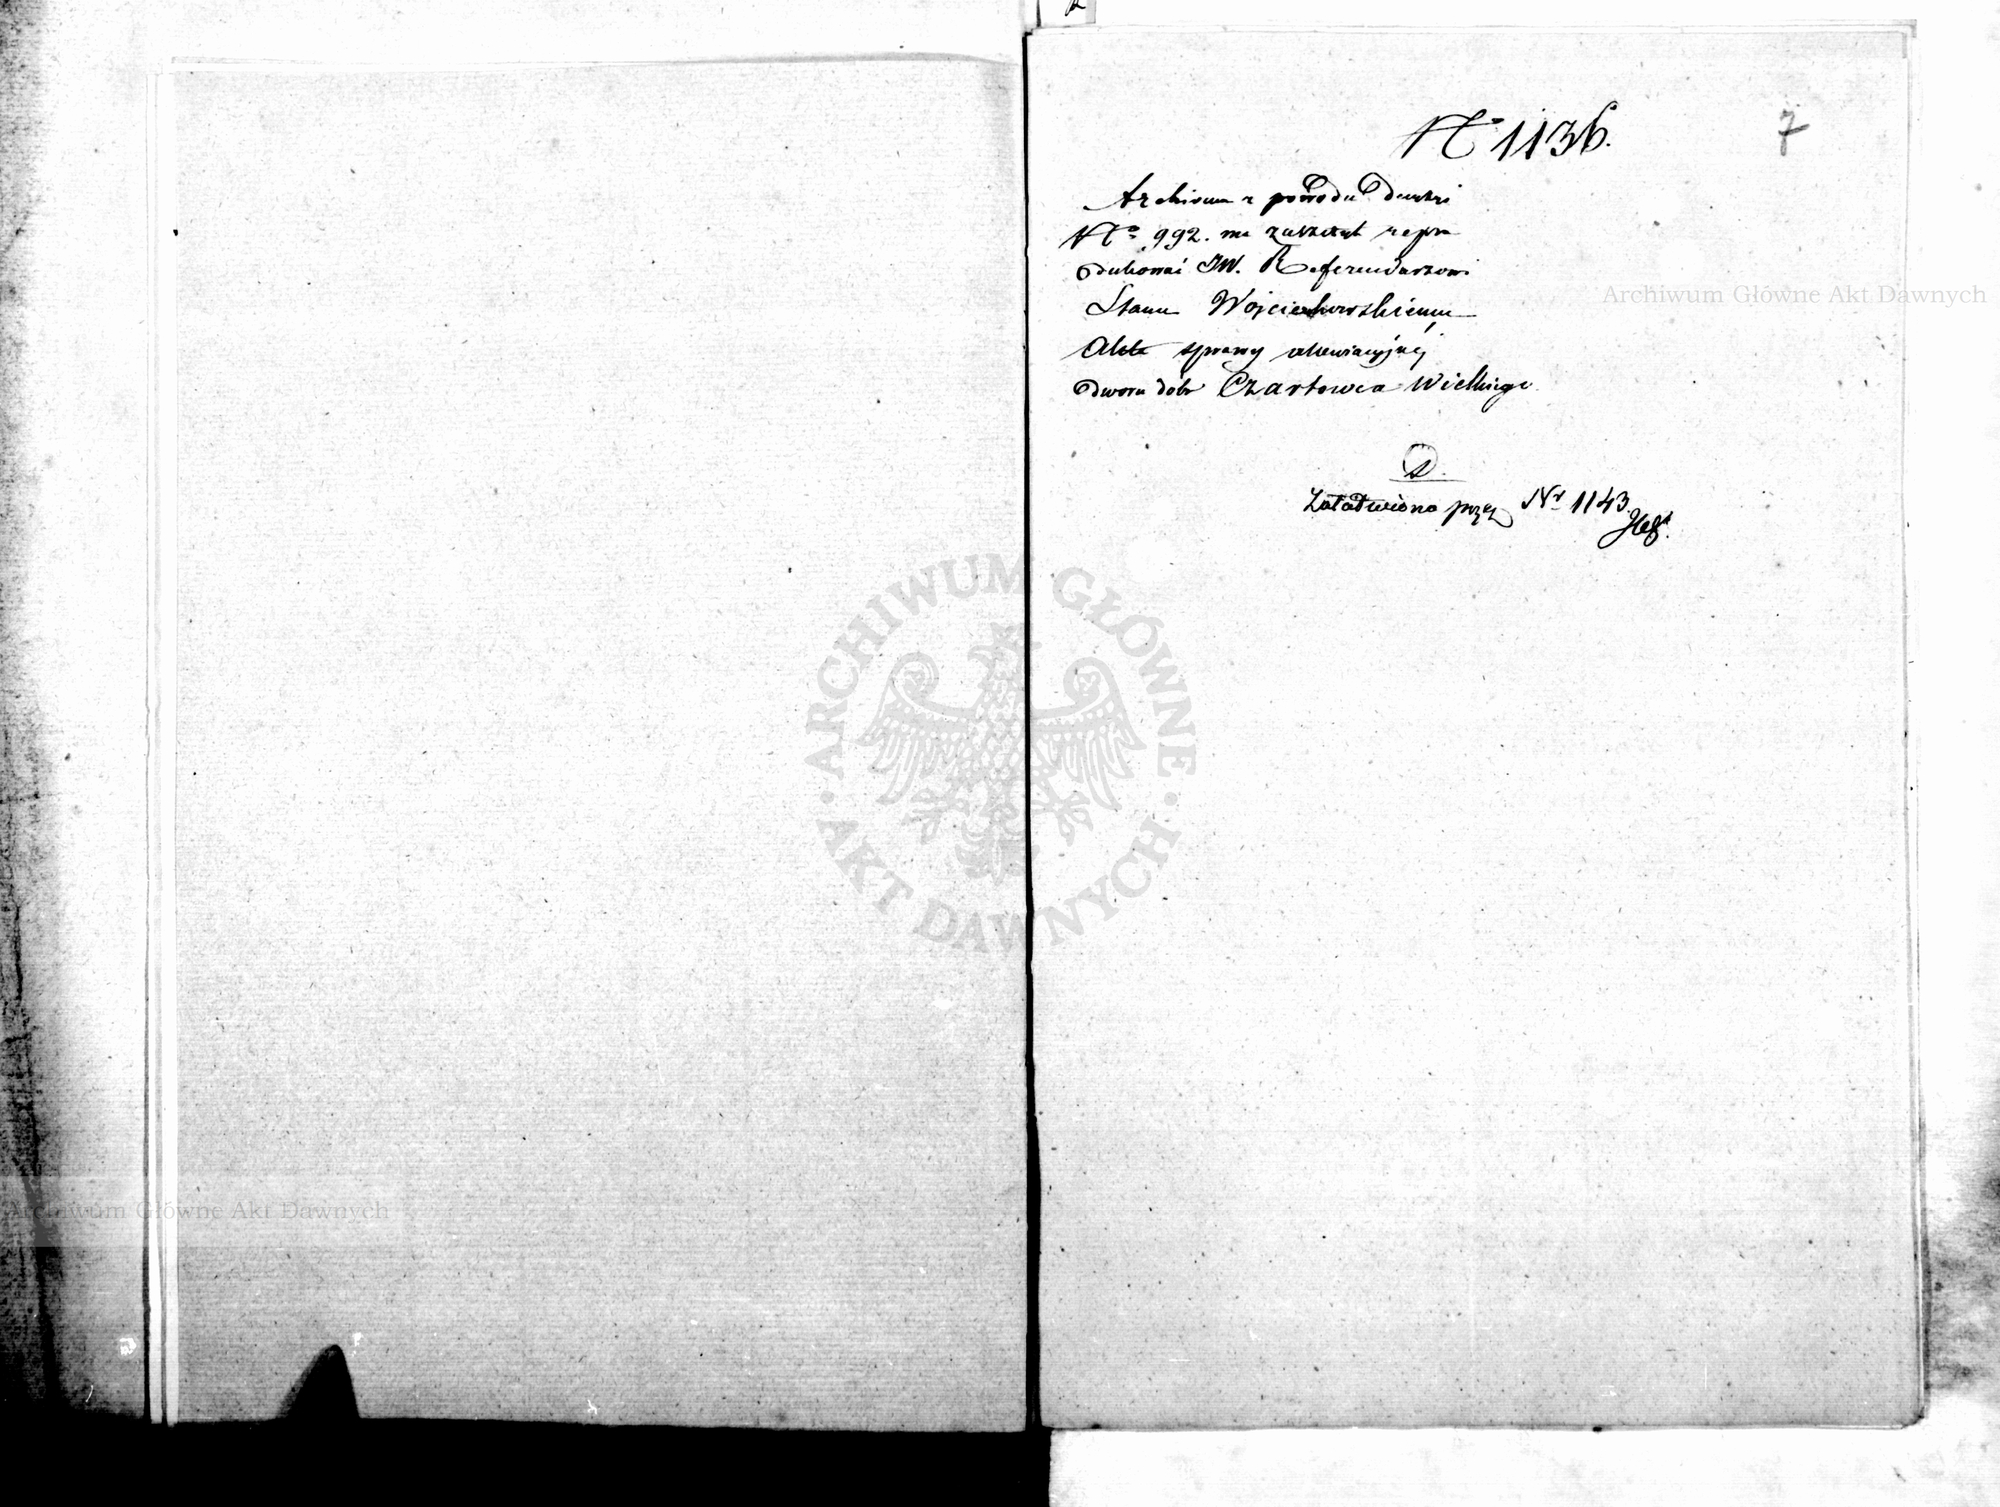 7
No 1136.
Archiwum z powodu
No 992. ma zaszczyt repro
dukować JW. Referendarzowi
Stanu Wojciechowskiemu
Akta sprawy
dworu dóbr Czartowca Wielkiego
Załatwiono przez Nr 1143.
Archiwum Główne Akt Dawnych
ARCHIWUM GŁÓWNE AKT DAWNYCH
Archiwum Główne Akt Dawnych